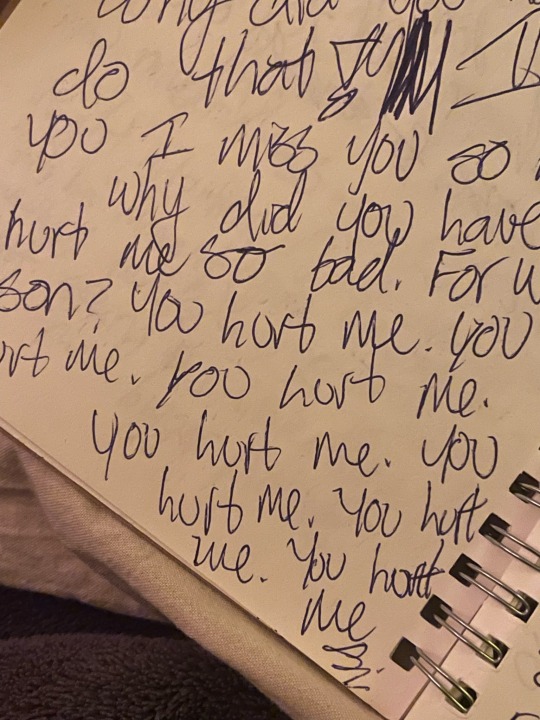 why did you
do that
you I miss you so
why did you have
hurt me so bad. For
son? You hurt me. you
hurt me. you hurt me.
you hurt me. you
hurt me. You hurt
me. You hurt
me